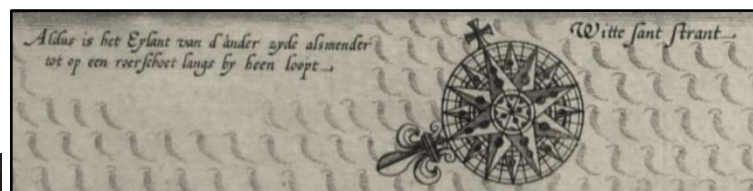 Aldus is het Eylant van d'ander zyde alsmender
tot op een roerschoet langs by heen loopt
Witte sant strant